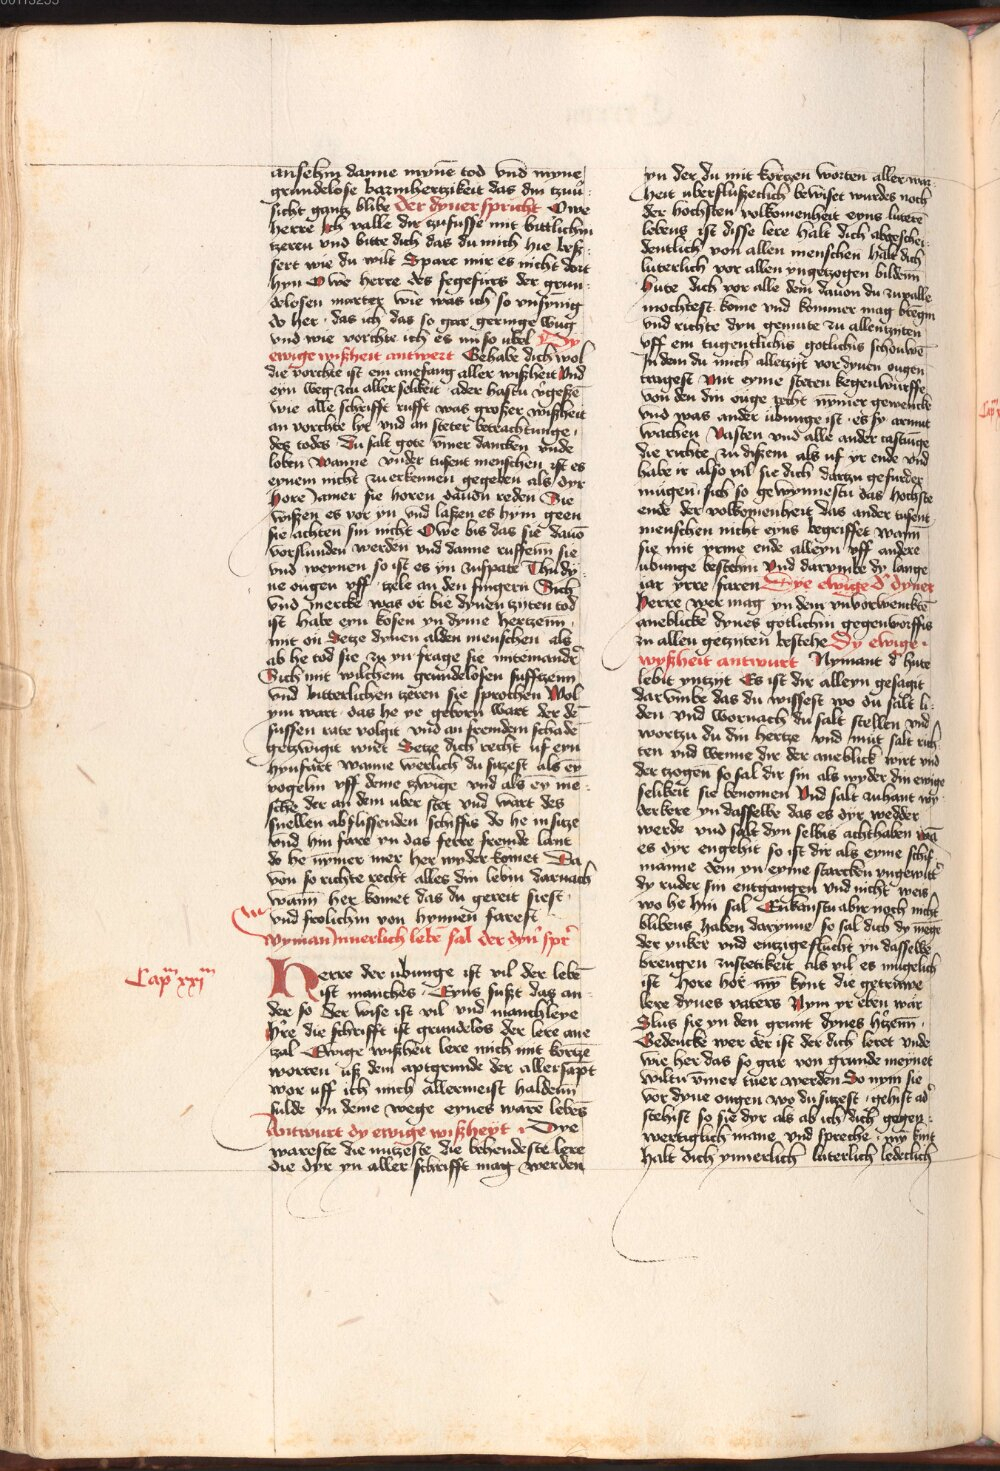 ansehin danne myne tod vnd myne
grundelose barmhertzikeit das din tzuu͛-
sicht gantz blibe der dyner spricht Owe
herre Ich valle dir zufusse mit bittlichin
tzeren vnd bitte dich das du mich hie besz-
sert wie du wilt Spare mir es nicht dort
hyn Owe herre des fegefurs der grun-
delosen marter wie was ich so vnsynnig
do her · das ich das so gar geringe wug
vnd wie vorchte ich es nu so ubel Dy
ewige wißheit antwert Gehabe dich wol
die vorchte ist ein anefang aller wißheit Vnd
eyn weg zcu aller selikeit · ader hastu v͛geße
wie alle schrifft rufft was großer wißheit
an vorchte lyt vnd an steter betrachtunge ·
des todes · Du salt gote ymer dancken vnde
loben Wanne vnder tusent menschen ist es
eynem nicht zu erkennen gegeben als dyr
Hore Jamer sie horen dauon reden Sie
wißen es vor yn vnd laßen es hyn geen
sie achten sin nicht Owe bis das sie dauō
vorslunden werden vnd danne ruffenn sie
vnd weynen so ist es yn zuspate Thu dy-
ne ougen vff · tzele an den fingern Sich
vnd mercke was or bie dynen tzyten tod
ist habe eyn kosen yn dyme hertzenn ·
mit on Setze dynen alden menschen als
ab he tod sie zu yn · frage sie mitenande͛
Sich mit wilchem grundelosen sufftzenn
vnd bitterlichen tzeren sie sprochen Wol
ym wart · das he ye geborn wart der dē
sussen rate volgit vnd an fremdem schadē
getzwigit wiet Setze dich recht uf eyn
hynfart wanne werlich du sitzest als ey
vogelin vff deme tzwige vnd als ey mē-
sche der an dem uber stet vnd wart des
snellen abflissenden schiffis do he in sitze
vnd hin fare yn das ferre fremde lant
do he nymer mer her wyder komet Da
von so richte recht alles din lebin darnach
wann her komet das du gereit siest ·
vnd frolichin von hynnen farest ·
Wyman Innerlich lebē sal der dyn͛ spr͛
Cap͛m xxjm
Herre der ubunge ist vil der lebē
ist manches · Eyns sußt das an-
der so der wise ist vil vnd manchleye
H͛re die schrifft ist grundelos der lere ane
tzal Ewige wißheit lere mich mit kortzē
worten uß dem aptgrunde der allersapt
wor uff ich mich allermeist haldenn
sulde yn deme wege eynes warē lebēs
Antwurt dy ewige wißheyt · Dye
wareste die nutzeste die behendeste lere
die dyr yn aller schrifft mag werden
yn der du mit kortzen worten aller war
heit uberflußeclich bewiset wurdes noch
der hochsten volkomenheit eyns luterē
lebens ist disse lere halt dich abgeschei-
dentlich von allen menschen halt dich
luterlich vor allen yngetzogen bildenn
Hute dich vor alle dem dauon du zuualle
mochtest kome vnd kommer mag brēgin
vnd richte dyn gemute zu allentzyten
vff ein tugentlichis gotlichis schouwē
In dem du mich alletzyt vor dynen ougen
tragest Mit eyme steten kegenwurffe
von den din ouge recht nymer gewencke
vnd was ander ubunge ist · es sy armut
wachen Vasten vnd alle ander castunge
die richte zu disem als uf yr ende vnd
habe ir also vil sie dich dartzu gefurder
mugen · sich so gewynnestu das hochste
ende der volkomenheit das ander tusent
menschen nicht eyns begriffet wann
sie mit yrme ende alleyn vff andere
ubunge bestehin Vnd darymbe dy lange
iar yrre faren Dye ewige d͛ dyner
Herre wer mag yn dem vnuorwencktē
aneblicke dynes gotlichin gegenworffis
zu allen getzyten bestehe Dy ewige ·
wyßheit antwurt Nymant d͛ hute
lebit yntzyt Es ist dir alleyn gesagit
dar vmbe das du wissest wo du salt li-
den vnd wornach du salt stellen vnd
wortzu du din hertze vnd mut salt rich-
ten vnd wenne dir der aneblick wirt vnd
der tzogen so sal dir sin als wyder din ewige
selikeit sie benomen Vnd salt zuhant wy-
derkere yn dasselbe das es dyr wedder
werde vnd salt dyn selbis achthaben wā
es dyr engehit so ist dir als eyme schif-
manne dem yn eyme starcken yngewitt͛
dy ruder sin entgangen vnd nicht weis
wo he hin sal Enkanstu abir noch nicht
blibens haben darynne so sal dich dy mēge
der ynker vnd entzige flucht yn dasselbe
brengen zustetikeit als vil es mugelich
ist Hore hore my kynt die getruwe
lere dynes vaters Nym yr eben war
Slus sie yn den grunt dynes h͛tzenn ·
Gedencke wer der ist der dich leret vnde
wie her das so gar von grunde meynet
wiltu ymer tuer werden So nym sie
vor dyne ougen wo du sitzest · gehist ad͛
stehist so sie dyr als ab ich dich gegen-
wertiglich mane vnd spreche · my kint
halt dich ynnerlich luterlich ledeclich